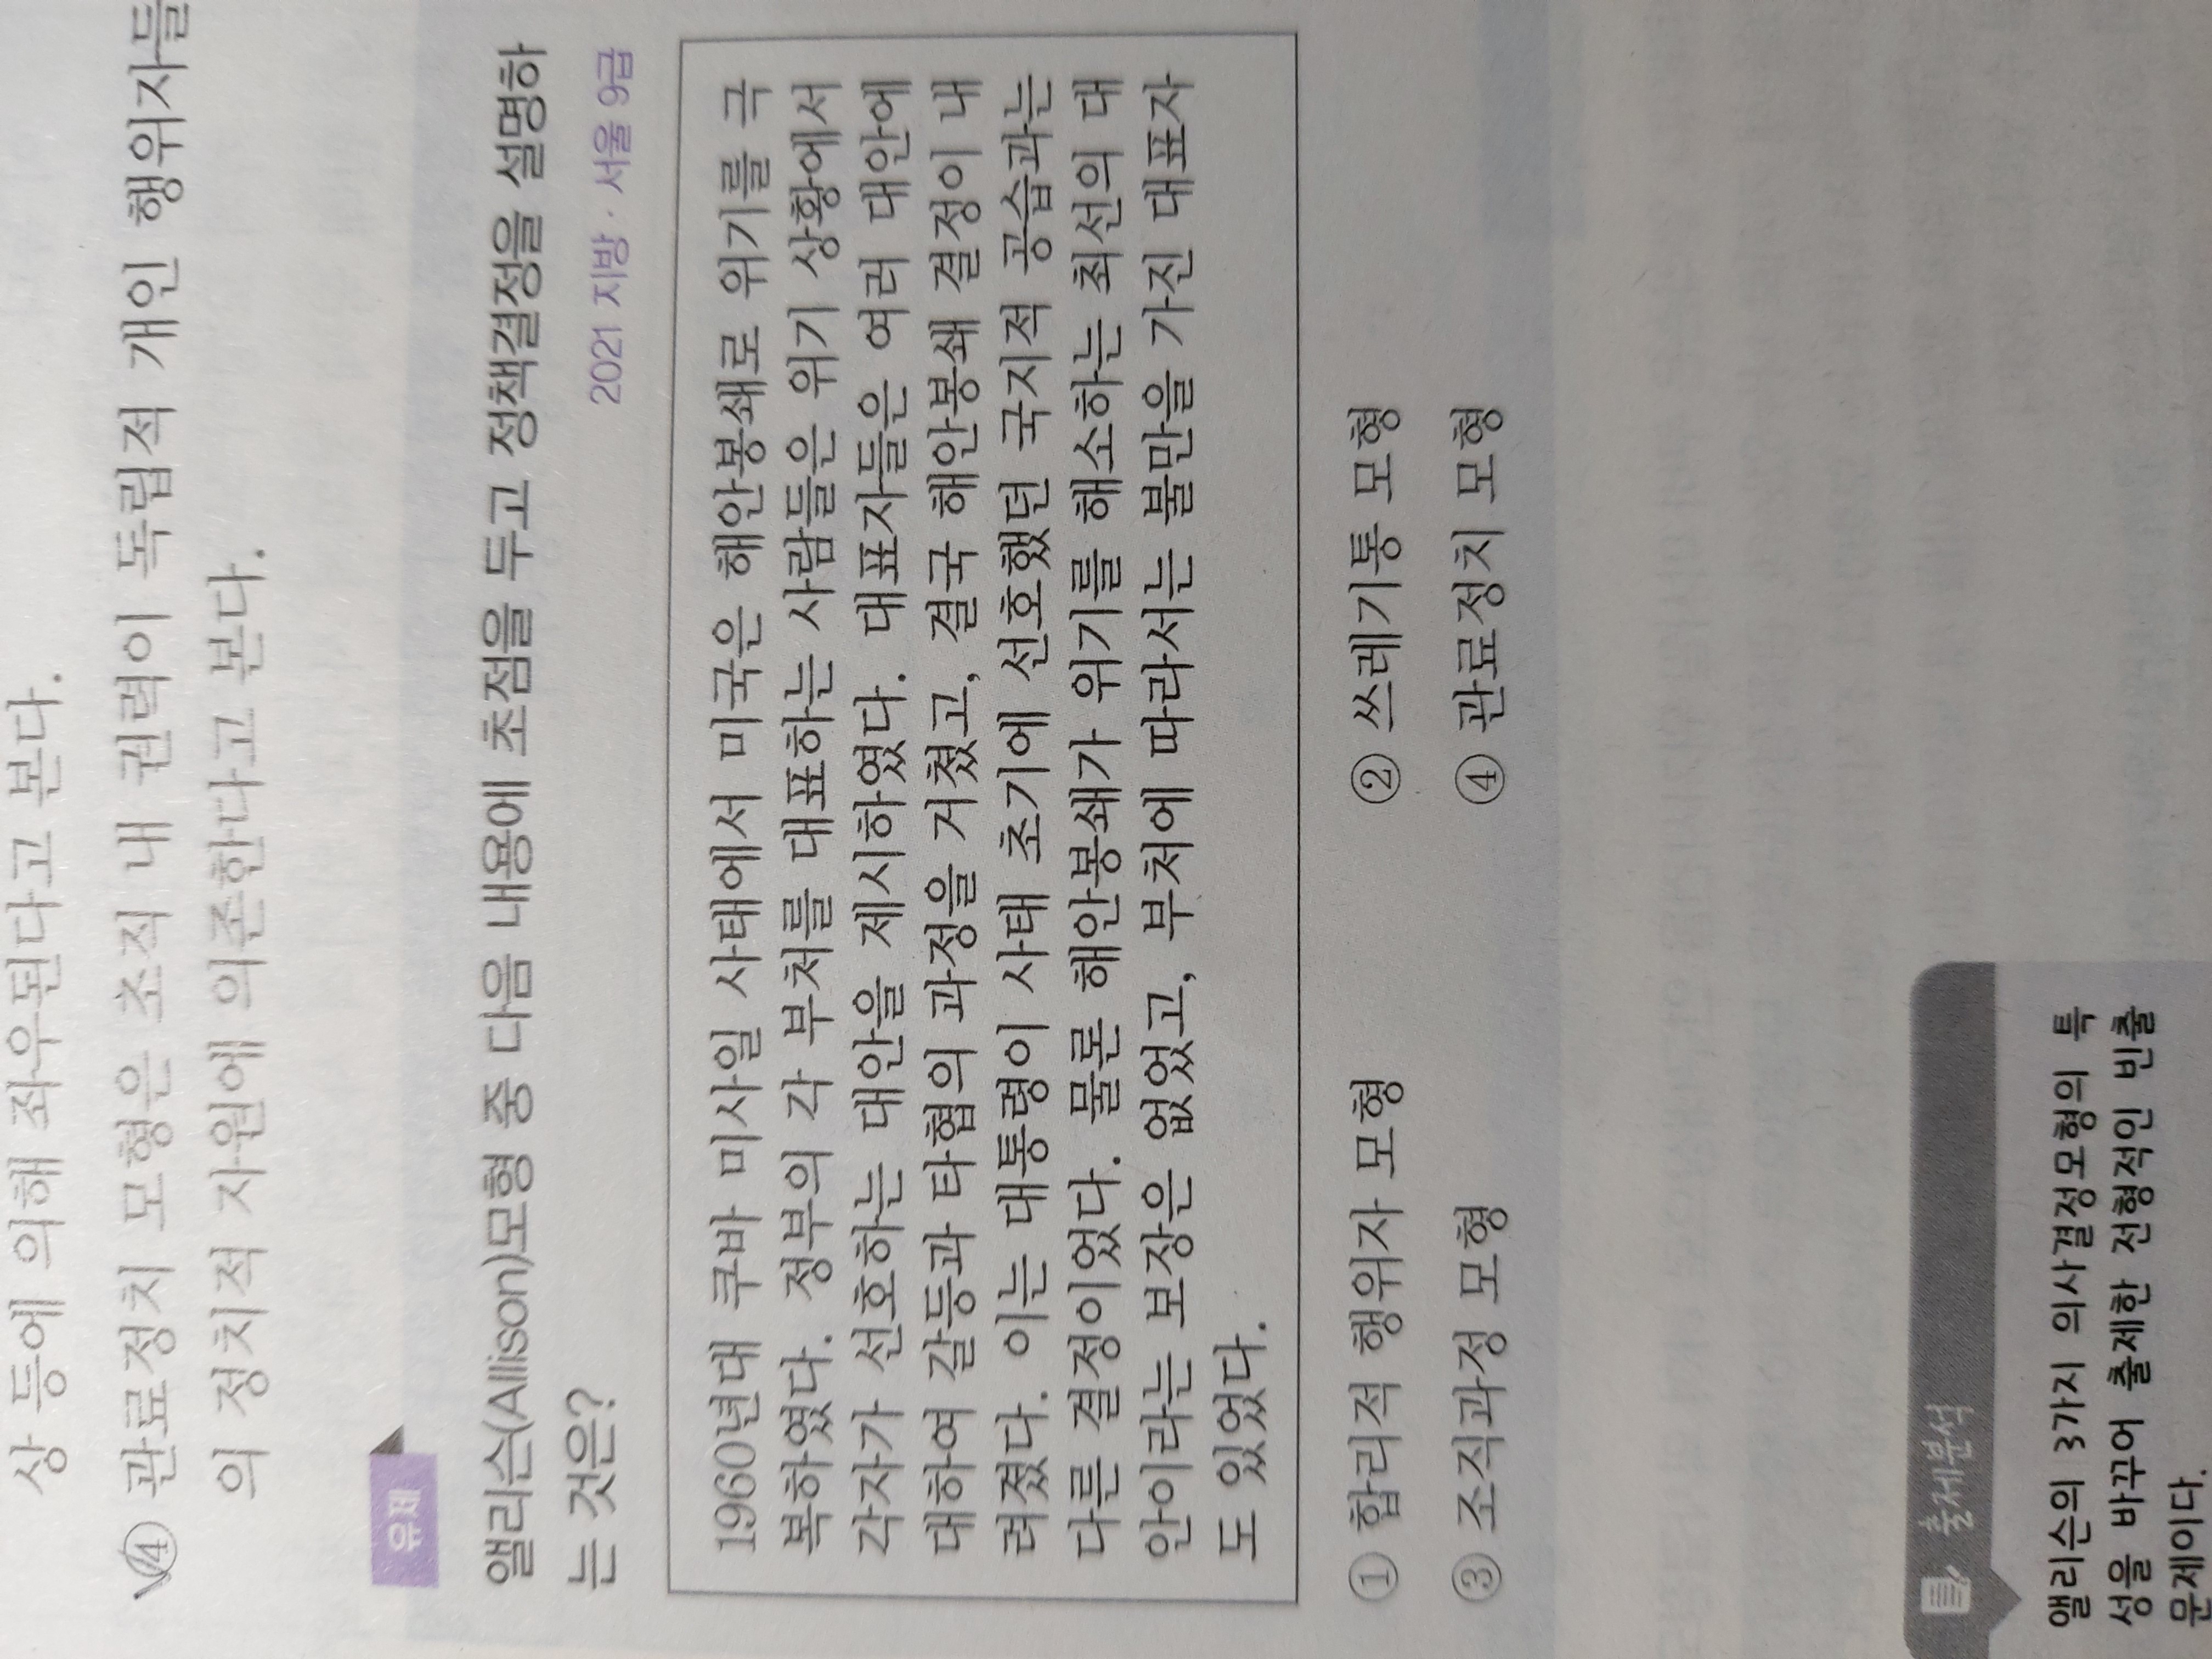 상 등에 의해 좌우된다고 본다.
④ 관료정치 모형은 조직 내 권력이 독립적 개인 행위자들
의 정치적 자원에 의존한다고 본다.
유제
앨리슨(Allison)모형 중 다음 내용에 초점을 두고 정책결정을 설명하
는 것은?
2021 지방·서울 9급
1960년대 쿠바 미사일 사태에서 미국은 해안봉쇄로 위기를 극
복하였다. 정부의 각 부처를 대표하는 사람들은 위기 상황에서
각자가 선호하는 대안을 제시하였다. 대표자들은 여러 대안에
대하여 갈등과 타협의 과정을 거쳤고, 결국 해안봉쇄 결정이 내
려졌다. 이는 대통령이 사태 초기에 선호했던 국지적 공습과는
다른 결정이었다. 물론 해안봉쇄가 위기를 해소하는 최선의 대
안이라는 보장은 없었고, 부처에 따라서는 불만을 가진 대표자
도 있었다.
① 합리적 행위자 모형 ② 쓰레기통 모형
③ 조직과정 모형 ④ 관료정치 모형
출제분석
앨리슨의 3가지 의사결정모형의 특
성을 바꾸어 출제한 전형적인 빈출
문제이다.